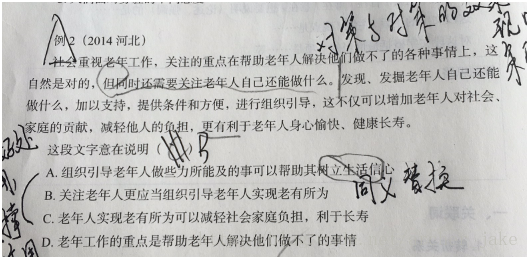 例 2（2014 河北）
社会重视老年工作，关注的重点在帮助老年人解决他们做不了的各种事情上，这
自然是对的，但同时还需要关注老年人自己还能做什么。发现、发掘老年人自己还能
做什么，加以支持，提供条件和方便，进行组织引导，这不仅可以增加老年人对社会、
家庭的贡献，减轻他人的负担，更有利于老年人身心愉快、健康长寿。
这段文字意在说明（ ）B
A. 组织引导老年人做些力所能及的事可以帮助其树立生活信心
B. 关注老年人更应当组织引导老年人实现老有所为
同义替换
C. 老年人实现老有所为可以减轻社会家庭负担，利于长寿
D. 老年工作的重点是帮助老年人解决他们做不了的事情
对策与对策的